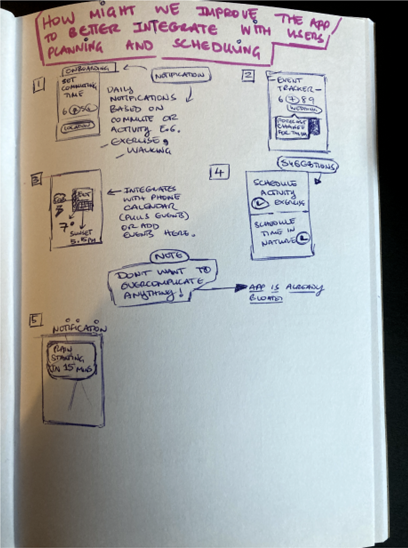 HOW MIGHT WE IMPROVE THE APP
TO BETTER INTEGRATE WITH USERS
PLANNING AND SCHEDULING
1
ONBOARDING
NOTIFICATION
SET
COMMUTING
TIME
LOCATION
DAILY
NOTIFICATIONS
BASED ON
COMMUTE OR
ACTIVITY E.G.
- EXERCISE
- WALKING
2
EVENT
TRACKER
6 7 8 9
FORECAST
CHANGED
FOR 7th
3
7°
SUNSET
5.15PM
INTEGRATES
WITH PHONE
CALENDAR
(PULLS EVENTS)
OR ADD
EVENTS HERE.
4
SUGGESTIONS
SCHEDULE
ACTIVITY
EXERCISE
SCHEDULE
TIME IN
NATURE
NOTE
DON'T WANT TO
OVERCOMPLICATE
ANYTHING!
APP IS ALREADY
BLOATED
5
NOTIFICATION
RAIN
STARTING
IN 15 MINS